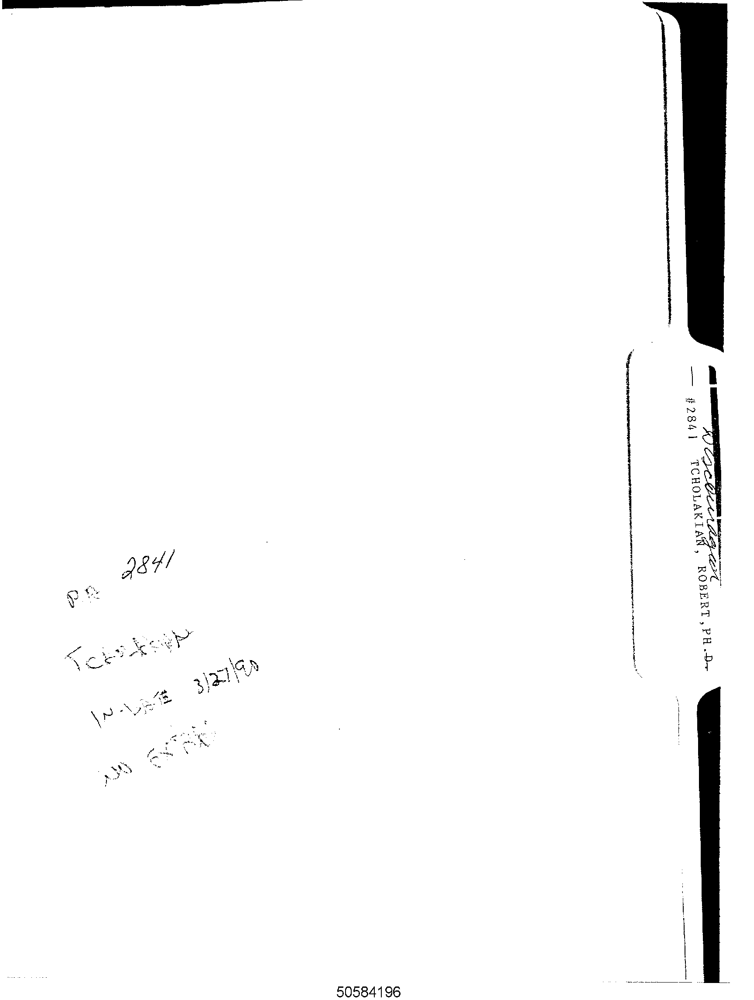 Discouraged
— #2841 TCHOLAKIAN, ROBERT, PH.D.
PA 2841
TCHOLAKIAN
IN-DATE 3/27/90
NO EXTRA
50584196